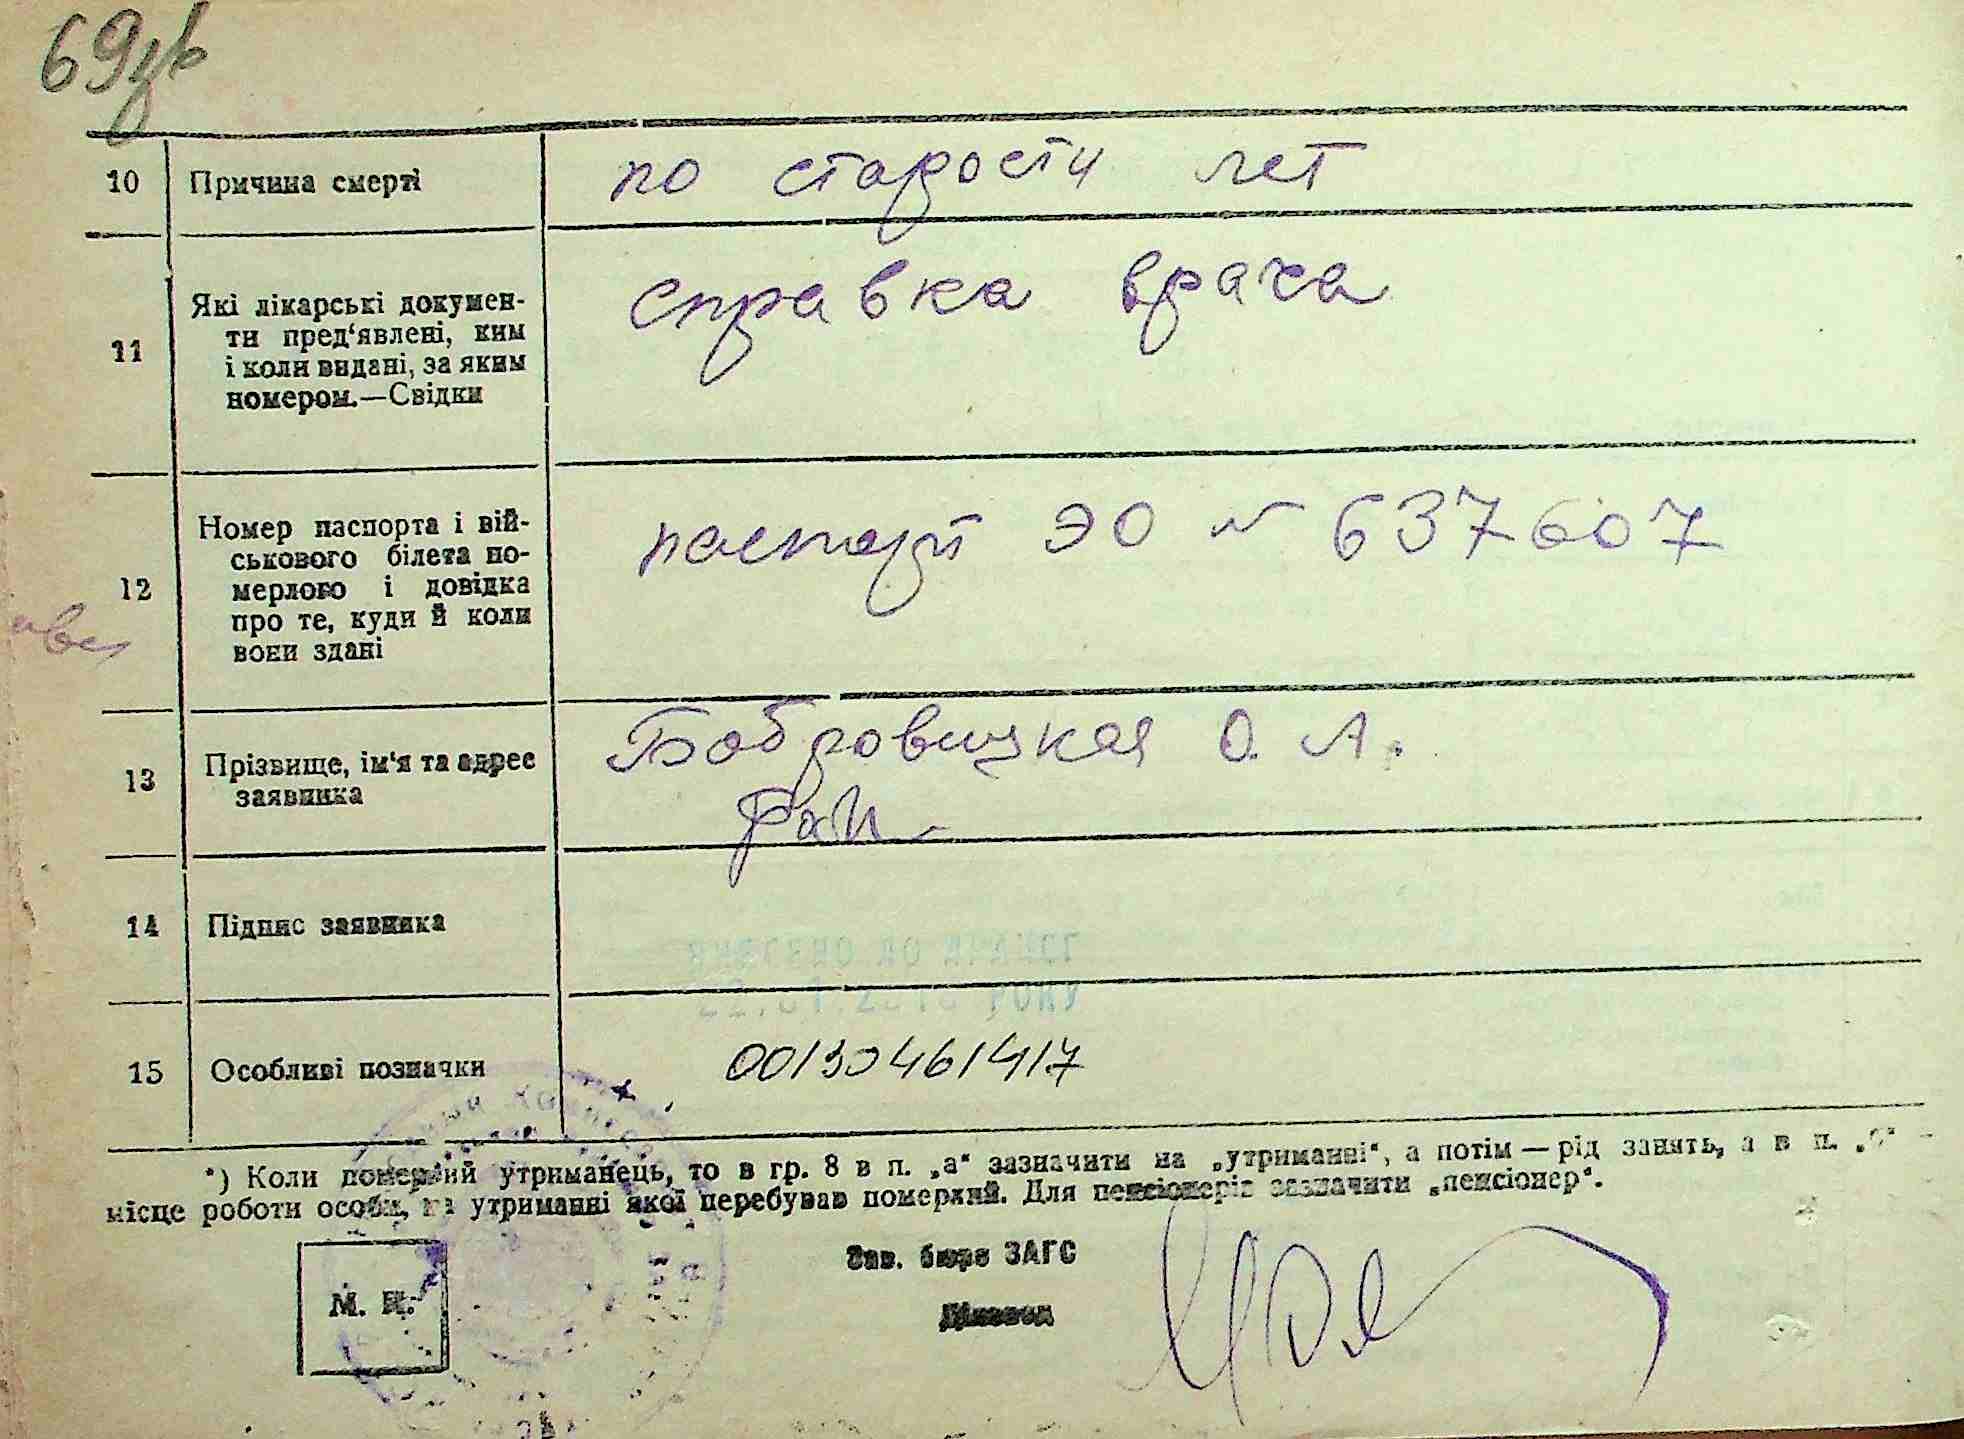 69зв
10 Причина смерті по старости лет
11 Які лікарські докумен-
ти пред‘явлені, ким
і коли видані, за яким
номером.—Свідки
справка врача
12 Номер паспорта і вій-
ськового білета по-
мерлого і довідка
про те, куди й коли
вони здані
паспорт ЭО № 637607
13 Прізвище, ім‘я та адрес
заявника
Бобровицкая О. А.
14 Підпис заявника
15 Особливі позначки 00130461417
*) Коли померлий утриманець, то в гр. 8 в п. „а“ зазначити на „утриманні“, а потім — рід занять, а в п.
місце роботи особи, на утриманні якої перебував померлий. Для пенсіонерів зазначити „пенсіонер“.
Зав. бюро ЗАГС
М. П.
Діловод